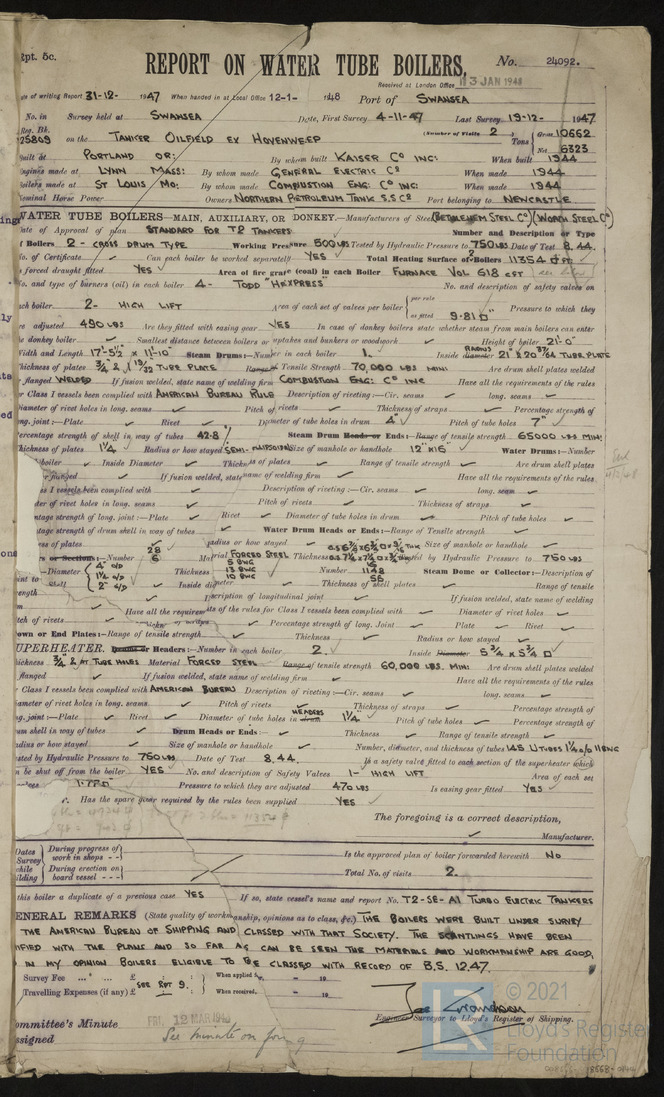 Rpt. 5c.
REPORT ON WATER TUBE BOILERS.
No. 24092.
Received at London Office 13 JAN 1948
of writing Report 31-12-1947 When handed in at Local Office 12-1-1948 Port of SWANSEA
No. in Survey held at SWANSEA Date, First Survey 4-11-47 Last Survey 19-12-1947
Reg. Bk. (Number of Visits 2)
25809 on the TANKER OILFIELD EX HOVENWEEP Tons Gross 10662 Net 6323
Built at PORTLAND OR: By whom built KAISER Co INC: When built 1944
Engines made at LYNN MASS: By whom made GENERAL ELECTRIC Co When made 1944
Boilers made at ST LOUIS MO: By whom made COMBUSTION ENG: Co INC: When made 1944
Nominal Horse Power Owners NORTHERN PETROLEUM TANK S.S Co Port belonging to NEWCASTLE
WATER TUBE BOILERS—MAIN, AUXILIARY, OR DONKEY.—Manufacturers of Steel (BETHLEHEM STEEL Co) (WORTH STEEL Co)
Date of Approval of plan STANDARD FOR T2 TANKERS Number and Description or Type
of Boilers 2 - CROSS DRUM TYPE Working Pressure 500 LBS Tested by Hydraulic Pressure to 750 LBS Date of Test 8.44.
No. of Certificate Can each boiler be worked separately YES Total Heating Surface of 2 Boilers 11354 □ FT.
is forced draught fitted YES Area of fire grate (coal) in each Boiler FURNACE VOL 618 CFT
No. and type of burners (oil) in each boiler 4 - TODD "HEXPRESS" No. and description of safety valves on
each boiler 2- HIGH LIFT Area of each set of valves per boiler { per rule as fitted 9.81 □" Pressure to which they
are adjusted 490 LBS Are they fitted with easing gear YES In case of donkey boilers state whether steam from main boilers can enter
the donkey boiler Smallest distance between boilers or uptakes and bunkers or woodwork Height of boiler 21'-0"
Width and Length 17'-5½" x 11'-10" Steam Drums:—Number in each boiler 1. Inside diameter RADIUS 21" & 20 37/64 TUBE PLATE
Thickness of plates ¾" & 1 13/32 TUBE PLATE Range of Tensile Strength 70,000 LBS MINI Are drum shell plates welded
or flanged WELDED If fusion welded, state name of welding firm COMBUSTION ENG: Co INC Have all the requirements of the rules
for Class I vessels been complied with AMERICAN BUREAU RULE Description of riveting:—Cir. seams long. seams
Diameter of rivet holes in long. seams Pitch of rivets Thickness of straps Percentage strength of
long. joint:—Plate Rivet Diameter of tube holes in drum 4" Pitch of tube holes 7"
Percentage strength of shell in way of tubes 42.8 Steam Drum Heads or Ends:—Range of tensile strength 65000 LBS MINI
Thickness of plates 1¼ Radius or how stayed SEMI-ELLIPSOIDAL Size of manhole or handhole 12" x 16" Water Drums:—Number
boiler Inside Diameter Thickness of plates Range of tensile strength Are drum shell plates
or flanged If fusion welded, state name of welding firm Have all the requirements of the rules
Class I vessels been complied with Description of riveting:—Cir. seams long. seam
of rivet holes in long. seams Pitch of rivets Thickness of straps
strength of long. joint:—Plate Rivet Diameter of tube holes in drum Pitch of tube holes
strength of drum shell in way of tubes Water Drum Heads or Ends:—Range of Tensile strength
of plates Radius or how stayed Size of manhole or handhole
or Sections:—Number 28 6 Material FORGED STEEL Thickness by Hydraulic Pressure to 750 LBS
Diameter { 4" O/D 1¼ O/D 2" O/D 5 BWG 13 BWG 10 BWG Number 1148 56 Steam Dome or Collector:—Description of
Inside diameter Thickness of shell plates Range of tensile
Description of longitudinal joint If fusion welded, state name of welding
Have all the requirements of the rules for Class I vessels been complied with Diameter of rivet holes
Pitch of rivets Percentage strength of long. Joint Plate Rivet
Crown or End Plates:—Range of tensile strength Thickness Radius or how stayed
SUPERHEATER. Drums or Headers:—Number in each boiler 2. Inside Diameter 5¾ x 5¾ □
Thickness ¾" & AT TUBE HOLES Material FORGED STEEL Range of tensile strength 60,000 LBS. MINI Are drum shell plates welded
or flanged If fusion welded, state name of welding firm Have all the requirements of the rules
for Class I vessels been complied with AMERICAN BUREAU Description of riveting:—Cir. seams long. seams
Diameter of rivet holes in long. seams Pitch of rivets Thickness of straps Percentage strength of
long. joint:—Plate Rivet Diameter of tube holes in drum HEADERS 1¼" Pitch of tube holes Percentage strength of
drum shell in way of tubes Drum Heads or Ends:— Thickness Range of tensile strength
Radius or how stayed Size of manhole or handhole Number, diameter, and thickness of tubes 145 U TUBES 1¼ O/D 11 BWG
Tested by Hydraulic Pressure to 750 LBS Date of Test 8.44. Is a safety valve fitted to each section of the superheater which
can be shut off from the boiler YES No. and description of Safety Valves 1- HIGH LIFT Area of each set
Pressure to which they are adjusted 470 LBS Is easing gear fitted YES
Has the spare gear required by the rules been supplied YES
The foregoing is a correct description,
Manufacturer.
Dates Survey while building { During progress of work in shops - - { During erection on board vessel - - -
Is the approved plan of boiler forwarded herewith NO
Total No. of visits 2.
this boiler a duplicate of a previous case YES If so, state vessel's name and report No. T2-SE-A1 TURBO ELECTRIC TANKERS
GENERAL REMARKS (State quality of workmanship, opinions as to class, &c.) THE BOILERS WERE BUILT UNDER SURVEY
THE AMERICAN BUREAU OF SHIPPING AND CLASSED WITH THAT SOCIETY. THE SCANTLINGS HAVE BEEN
VERIFIED WITH THE PLANS AND SO FAR AS CAN BE SEEN THE MATERIALS AND WORKMANSHIP ARE GOOD,
IN MY OPINION BOILERS ELIGIBLE TO BE CLASSED WITH RECORD OF B.S. 12.47.
Survey Fee ... ... £ : : When applied for, 19
SEE RPT 9.
Travelling Expenses (if any) £ : : When received, 19
Engineer Surveyor to Lloyd's Register of Shipping.
Committee's Minute FRI. 12 MAR 1948
Assigned See minute on
© 2021
Lloyd's Register
Foundation